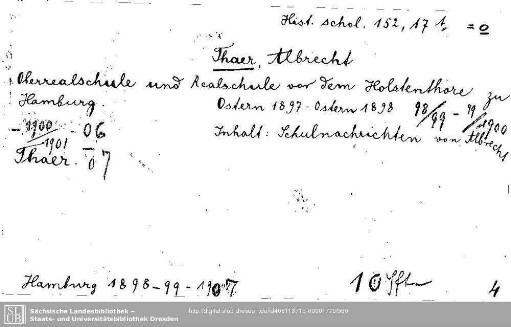 Hist. schol. 152, 17 t, = 0
Thaer, Albrecht
Oberrealschule und Realschule vor dem Holstenthore zu
Hamburg. Ostern 1897-Ostern 1898 98/99 - 99/1900
- 1900/1901 - 06
Inhalt: Schulnachrichten von Albrecht
Thaer. - 07
Hamburg 1898-99-1907
10
4
Sächsische Landesbibliothek –
Staats- und Universitätsbibliothek Dresden